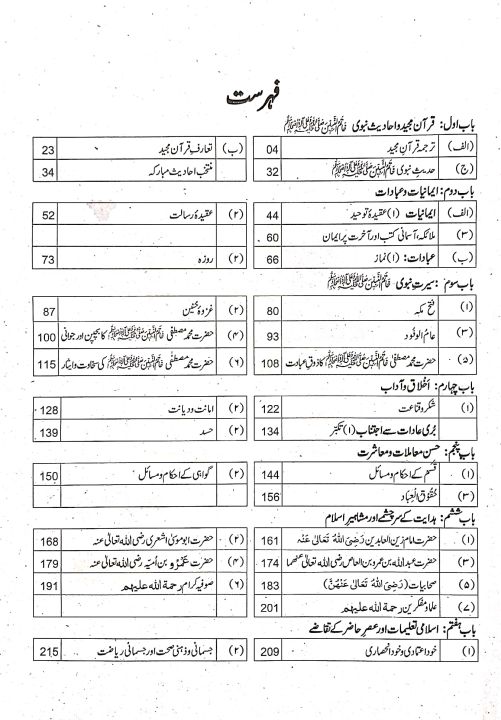 فہرست
باب اول: قرآن مجید و احادیث نبوی خاتم النبیین صلی اللہ علیہ وآلہ واصحابہ وسلم
(الف) ترجمہ قرآن مجید 04 (ب) تعارف قرآن مجید 23
(ج) حدیث نبوی خاتم النبیین صلی اللہ علیہ وآلہ واصحابہ وسلم 32 منتخب احادیث مبارکہ 34
باب دوم: ایمانیات و عبادات
(الف) ایمانیات (۱) عقیدۂ توحید 44 (۲) عقیدۂ رسالت 52
(۳) ملائکہ، آسمانی کتب اور آخرت پر ایمان 60
(ب) عبادات: (۱) نماز 66 (۲) روزہ 73
باب سوم: سیرت نبوی خاتم النبیین صلی اللہ علیہ وآلہ واصحابہ وسلم
(۱) فتح مکہ 80 (۲) غزوۂ حنین 87
(۳) عام الوفود 93 (۴) حضرت محمد مصطفٰی خاتم النبیین صلی اللہ علیہ وآلہ واصحابہ وسلم کا بچپن اور جوانی 100
(۵) حضرت محمد مصطفٰی خاتم النبیین صلی اللہ علیہ وآلہ واصحابہ وسلم کا ذوق عبادت 108 (۶) حضرت محمد مصطفٰی خاتم النبیین صلی اللہ علیہ وآلہ واصحابہ وسلم کی سخاوت و ایثار 115
باب چہارم: اَخلاق و آداب
(۱) شکر و قناعت 122 (۲) امانت و دیانت 128
بُری عادات سے اجتناب (۱) تکبّر 134 (۲) حسد 139
باب پنجم: حسن معاملات و معاشرت
(۱) قسم کے احکام و مسائل 144 (۲) گواہی کے احکام و مسائل 150
(۳) حُقُوقُ الْعِبَاد 156
باب ششم: ہدایت کے سرچشمے اور مشاہیر اسلام
(۱) حضرت امام زین العابدین رَضِیَ اللهُ تَعَالٰی عَنْهُ 161 (۲) حضرت ابو موسیٰ اشعری رضی اللہ تعالیٰ عنہ 168
(۳) حضرت عبداللہ بن عمرو بن العاص رضی اللہ تعالیٰ عنهما 174 (۴) حضرت عَمْرو بن اُمیّہ رضی اللہ تعالیٰ عنہ 179
(۵) صحابیات (رَضِیَ اللهُ تَعَالٰی عَنْهُنَّ) 183 (۶) صوفیہ کرام رحمة الله عليهم 191
(۷) علماء و مفکرین رحمة الله عليهم 201
باب ہفتم: اسلامی تعلیمات اور عصر حاضر کے تقاضے
(۱) خود اعتمادی و خود انحصاری 209 (۲) جسمانی و ذہنی صحت اور جسمانی ریاضت 215